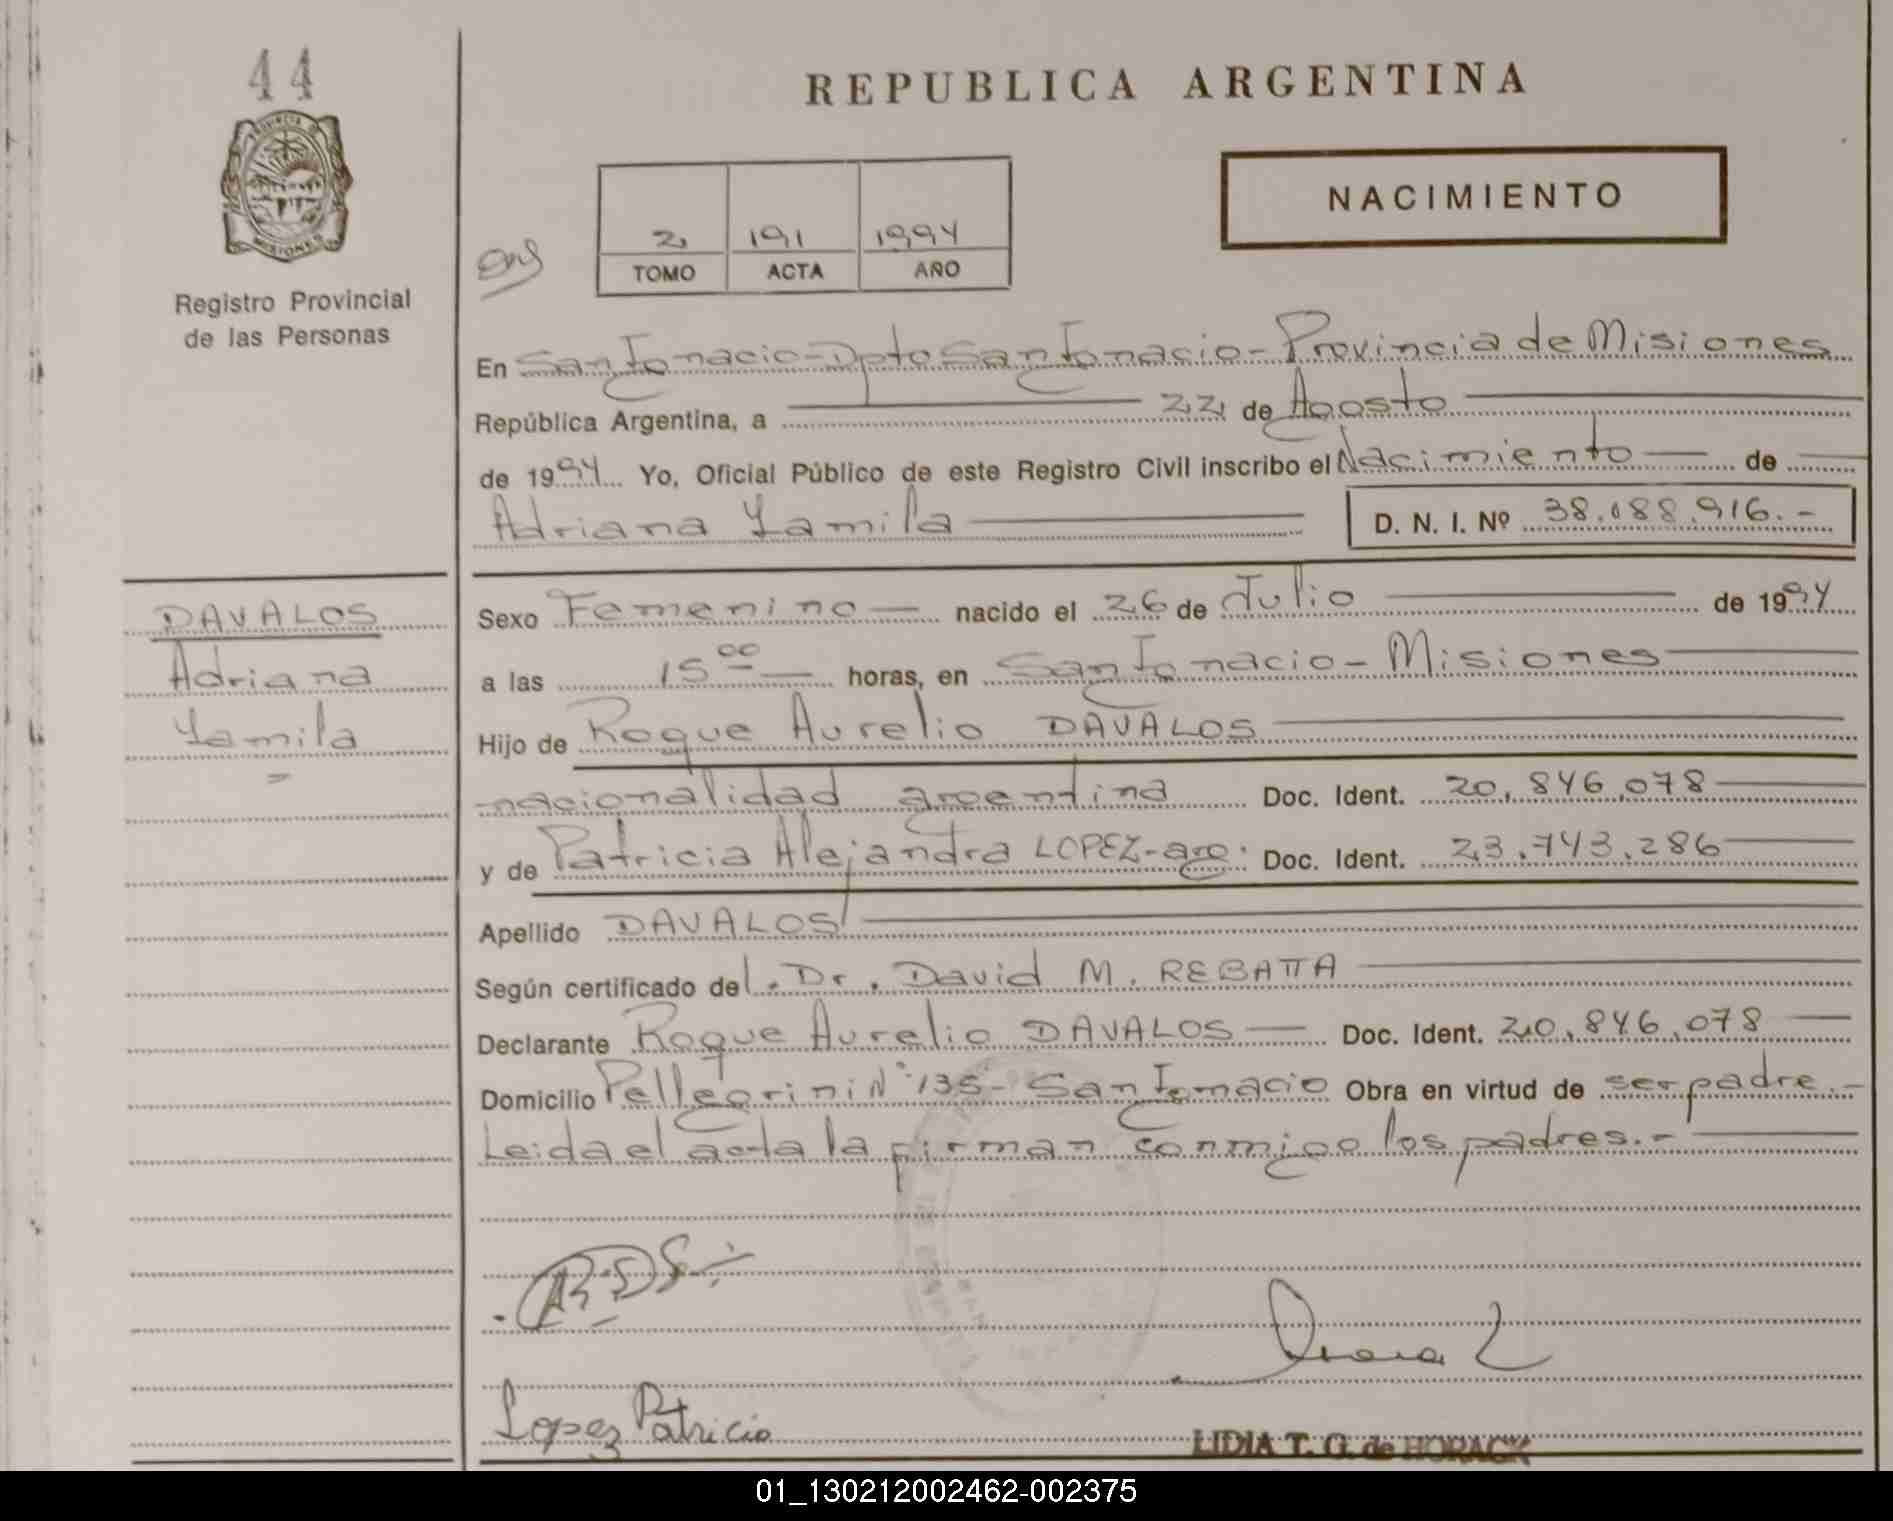 44
REPUBLICA ARGENTINA
PROVINCIA DE
MISIONES
Registro Provincial
de las Personas
2 191 1994
TOMO ACTA AÑO
NACIMIENTO
En San Ignacio - Dpto San Ignacio - Provincia de Misiones
República Argentina, a 22 de Agosto
de 1994 Yo, Oficial Público de este Registro Civil inscribo el Nacimiento de
Adriana Yamila D. N. I. Nº 38.188.916.-
DAVALOS
Adriana
Yamila
Sexo Femenino nacido el 26 de Julio de 1994
a las 15 00 horas, en San Ignacio - Misiones
Hijo de Roque Aurelio DAVALOS
nacionalidad argentina Doc. Ident. 20.846.078
y de Patricia Alejandra LOPEZ - arg. Doc. Ident. 23.743.286
Apellido DAVALOS
Según certificado del. Dr. David M. REBATTA
Declarante Roque Aurelio DAVALOS Doc. Ident. 20.846.078
Domicilio Pellegrini N° 135 - San Ignacio Obra en virtud de ser padre.-
Leida el acta la firman conmigo los padres.-
Lopez Patricia
LIDIA T. G. de HORACK
01_130212002462-002375